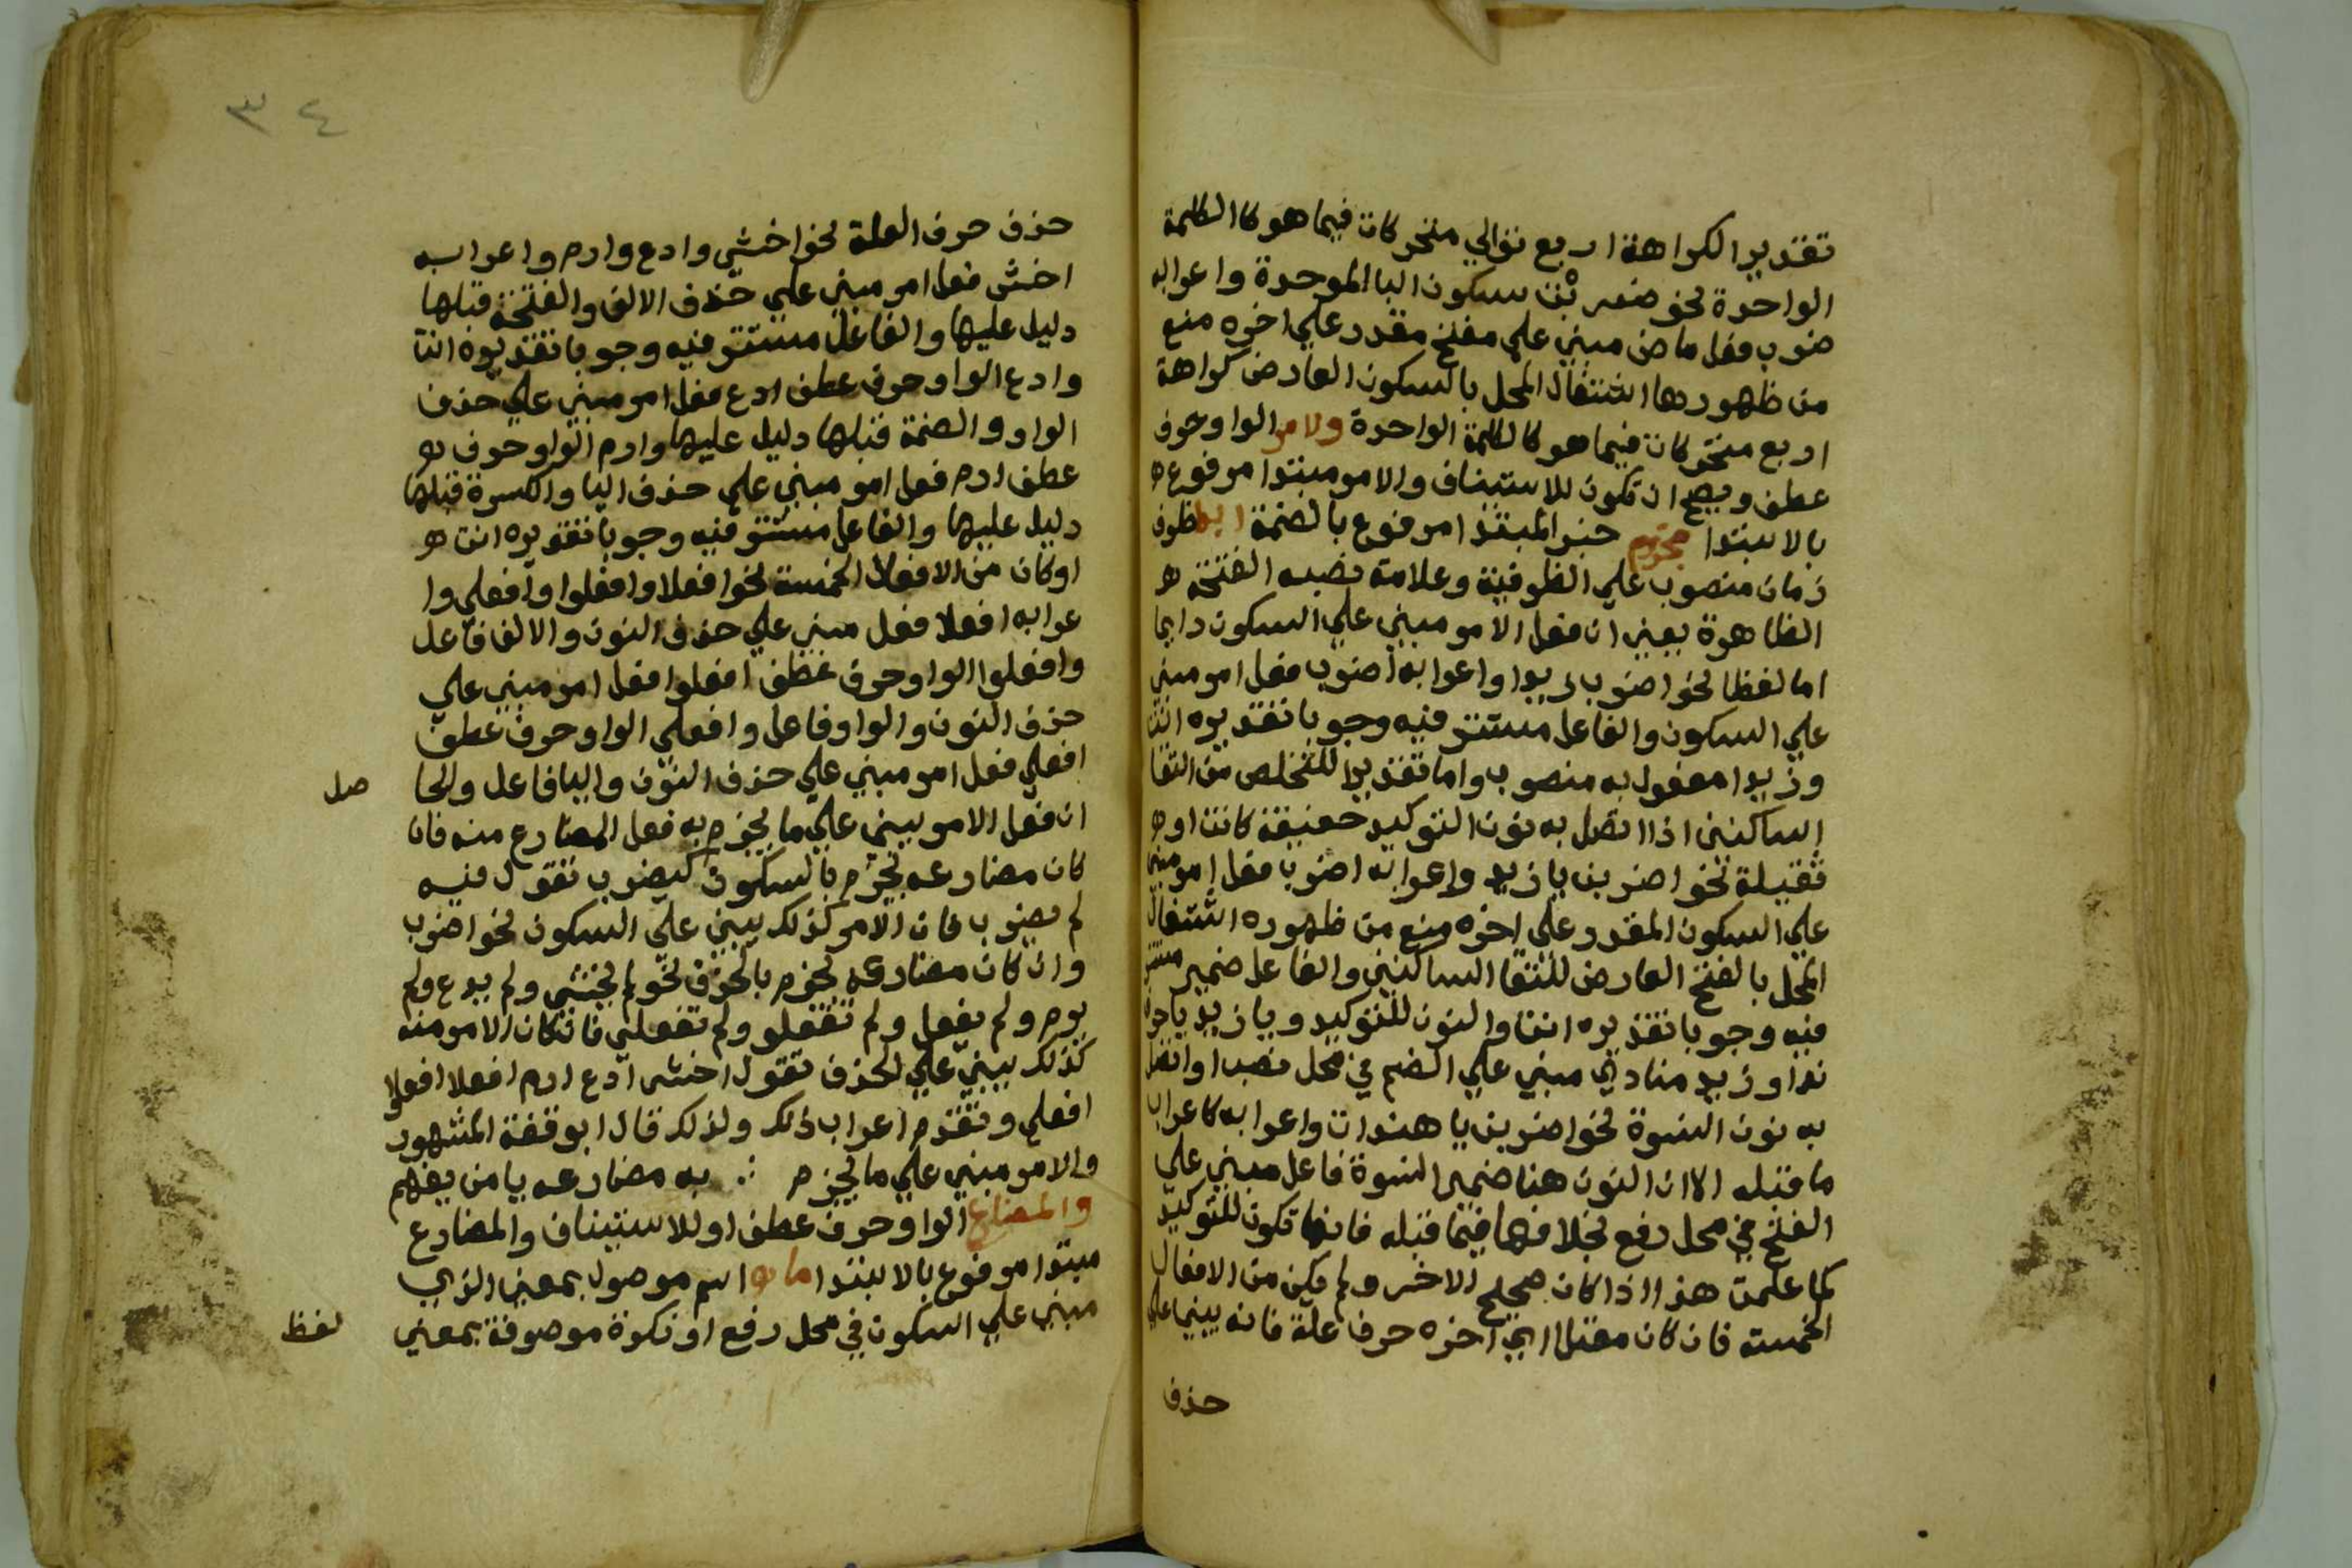 تقديرا لكراهة اربع توالي متحركات فيما هو كا الكلمة
الواحدة نحو ضربْت بسكون البا الموحدة واعرابه
ضرب فعل ماض مبني علي مفتح مقدر علي اخره منع
من ظهورها اشتغال المحل بالسكون العارض كراهة
اربع متحركات فيما هو كالكلمة الواحدة ولامر الواو حرف
عطف ويصح ان تكون للاستيناف والامر مبتدا مرفوع
بالابتدا مجزوم خبر المبتدا مرفوع بالضمة ابدا ظرف
زمان منصوب علي الظرفية وعلامة نصبه الفتحة
الظاهرة يعني ان فعل الامر مبني علي السكون دايما
اما لفظا نحو اضرب زيدا واعرابه اضرب فعل امر مبني
علي السكون والفاعل مستتر فيه وجوبا تقديره انت
وزيدا مفعول به منصوب واما تقديرا للتخلص من التقا
الساكنين اذا اتصل به نون التوكيد خفيفة كانت او
ثقيلة نحو اضربن يا زيد واعرابه اضرب فعل امر مبني
علي السكون المقدر علي اخره منع من ظهوره اشتغال
المحل بالفتح العارض لالتقا الساكنين والفاعل ضمير مستتر
فيه وجوبا تقديره انت والنون للتوكيد ويا زيد يا حرف
ندا وزيد منادي مبني علي الضم في محل نصب او اتصل
به نون النسوة نحو اضربن يا هندات واعرابه كاعراب
ما قبله الا ان النون هنا ضمير النسوة فاعل مبني علي
الفتح في محل رفع بخلافها فيما قبله فانها تكون للتوكيد
كما علمت هذا اذا كان صحيح الاخر ولم يكن من الافعال
الخمسة فان كان معتلا اي اخره حرف علة فانه يبني علي
حذف
٣٤
حذف حرف العلة نحو اخشي وادع وارم واعرابه
اخش فعل امر مبني علي حذف الالف والفتحة قبلها
دليل عليها والفاعل مستتر فيه وجوبا تقديره انت
وادع الواو حرف عطف ادع فعل امر مبني علي حذف
الواو والضمة قبلها دليل عليها وارم الواو حرف
عطف ارم فعل امر مبني علي حذف اليا والكسرة قبلها
دليل عليها والفاعل مستتر فيه وجوبا تقديره انت
او كان من الافعال الخمسة نحو افعلا وافعلوا وافعلي وا
عرابه افعلا فعل مبني علي حذف النون والالف فاعل
وافعلوا الواو حرف عطف افعلوا فعل امر مبني علي
حذف النون والواو فاعل وافعلي الواو حرف عطف
افعلي فعل امر مبني علي حذف النون واليا فاعل والحا
صل
ان فعل الامر يبني علي ما يجزم به فعل المضارع منه فان
كان مضارعه يجزم بالسكون كيضرب تقول فيه
لم يضرب فان الامر كذلك يبني علي السكون نحو اضرب
وان كان مضارعه يجزم بالحذف نحو لم يخشي ولم يدع ولم
يرم ولم يفعل ولم تفعلو ولم تفعلي فان كان الامر منه
كذلك يبني علي الحذف تقول اخش ادع ارم افعلا افعلوا
افعلي وتقدم اعراب ذلك ولذلك قال ابو قفة المشهور
والامر مبني علي ما يجزم ∴ به مضارعه يا من يفهم
والمضارع الواو حرف عطف او للاستيناف والمضارع
مبتدا مرفوع بالابتدا ما اسم موصول بمعني الذي
مبني علي السكون في محل رفع او نكرة موصوفة بمعني
لفظ